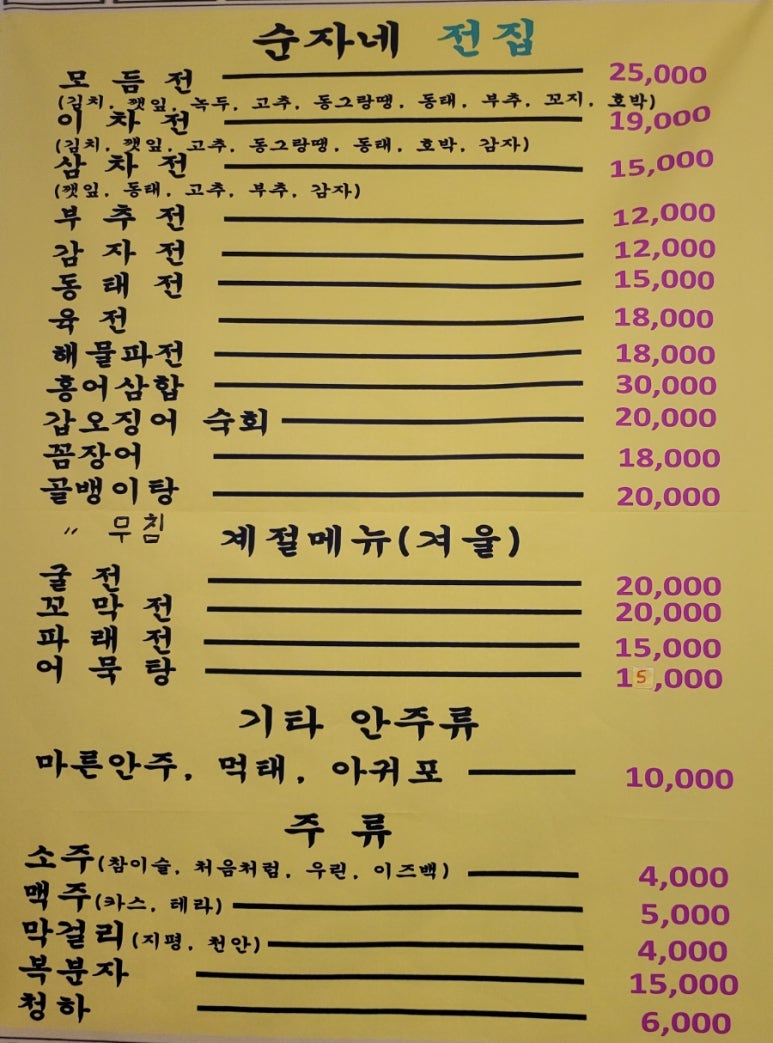 순자네 전집
모듬전 25,000
(김치, 깻잎, 녹두, 고추, 동그랑땡, 동태, 부추, 꼬지, 호박)
이차전 19,000
(김치, 깻잎, 고추, 동그랑땡, 동태, 호박, 감자)
삼차전 15,000
(깻잎, 동태, 고추, 부추, 감자)
부추전 12,000
감자전 12,000
동태전 15,000
육전 18,000
해물파전 18,000
홍어삼합 30,000
갑오징어 숙회 20,000
꼼장어 18,000
골뱅이탕 20,000
〃 무침
계절메뉴(겨울)
굴전 20,000
꼬막전 20,000
파래전 15,000
어묵탕 15,000
기타 안주류
마른안주, 먹태, 아귀포 10,000
주류
소주(참이슬, 처음처럼, 우린, 이즈백) 4,000
맥주(카스, 테라) 5,000
막걸리(지평, 천안) 4,000
복분자 15,000
청하 6,000